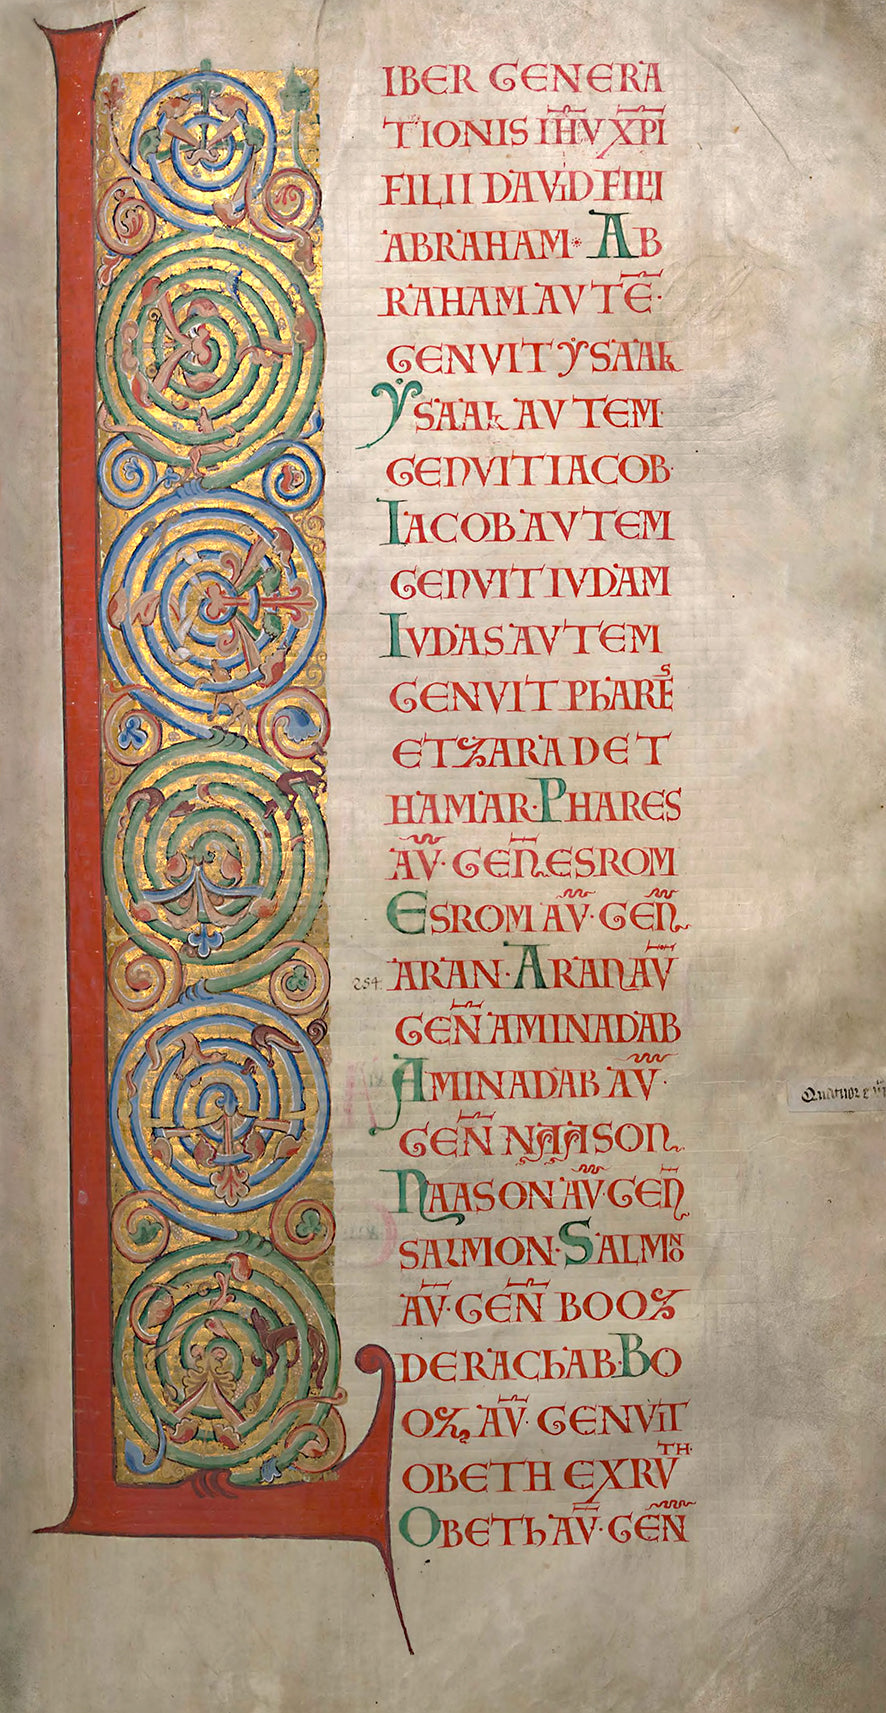 LIBER GENERA
TIONIS IH̅V X̅P̅I
FILII DAVID FILII
ABRAHAM· AB
RAHAM AVTE̅·
GENVIT ẎSAAk
ẎSAAk AVTEM
GENVIT IACOB·
IACOB AVTEM
GENVIT IVDAM
IVDAS AVTEM
GENVIT PhARES
ET ZARA DE T
HAMAR· PHARES
AV̅· GEN̅ ESROM
ESROM AV̅· GEN̅
254. ARAN· ARAN AV̅
GEN̅ AMINADAB
AMINADAB AV̅·
GEN̅ NAASON
NAASON AV̅· GEN̅
SALMON· SALMON
AV̅· GEN̅ BOOZ
DE RAChAB· BO
OZ AV̅· GENVIT
OBETH EX RVTH·
OBETh AV̅· GEN̅